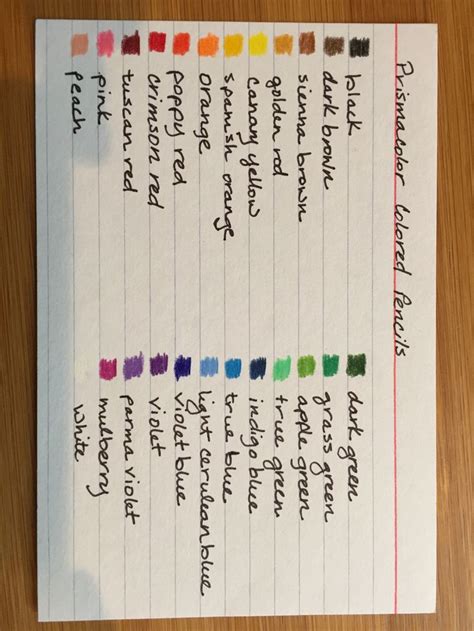 Prismacolor Colored Pencils
black
dark brown
sienna brown
golden rod
canary yellow
spanish orange
orange
poppy red
crimson red
tuscan red
pink
peach
dark green
grass green
apple green
true green
indigo blue
true blue
light cerulean blue
violet blue
violet
parma violet
mulberry
white